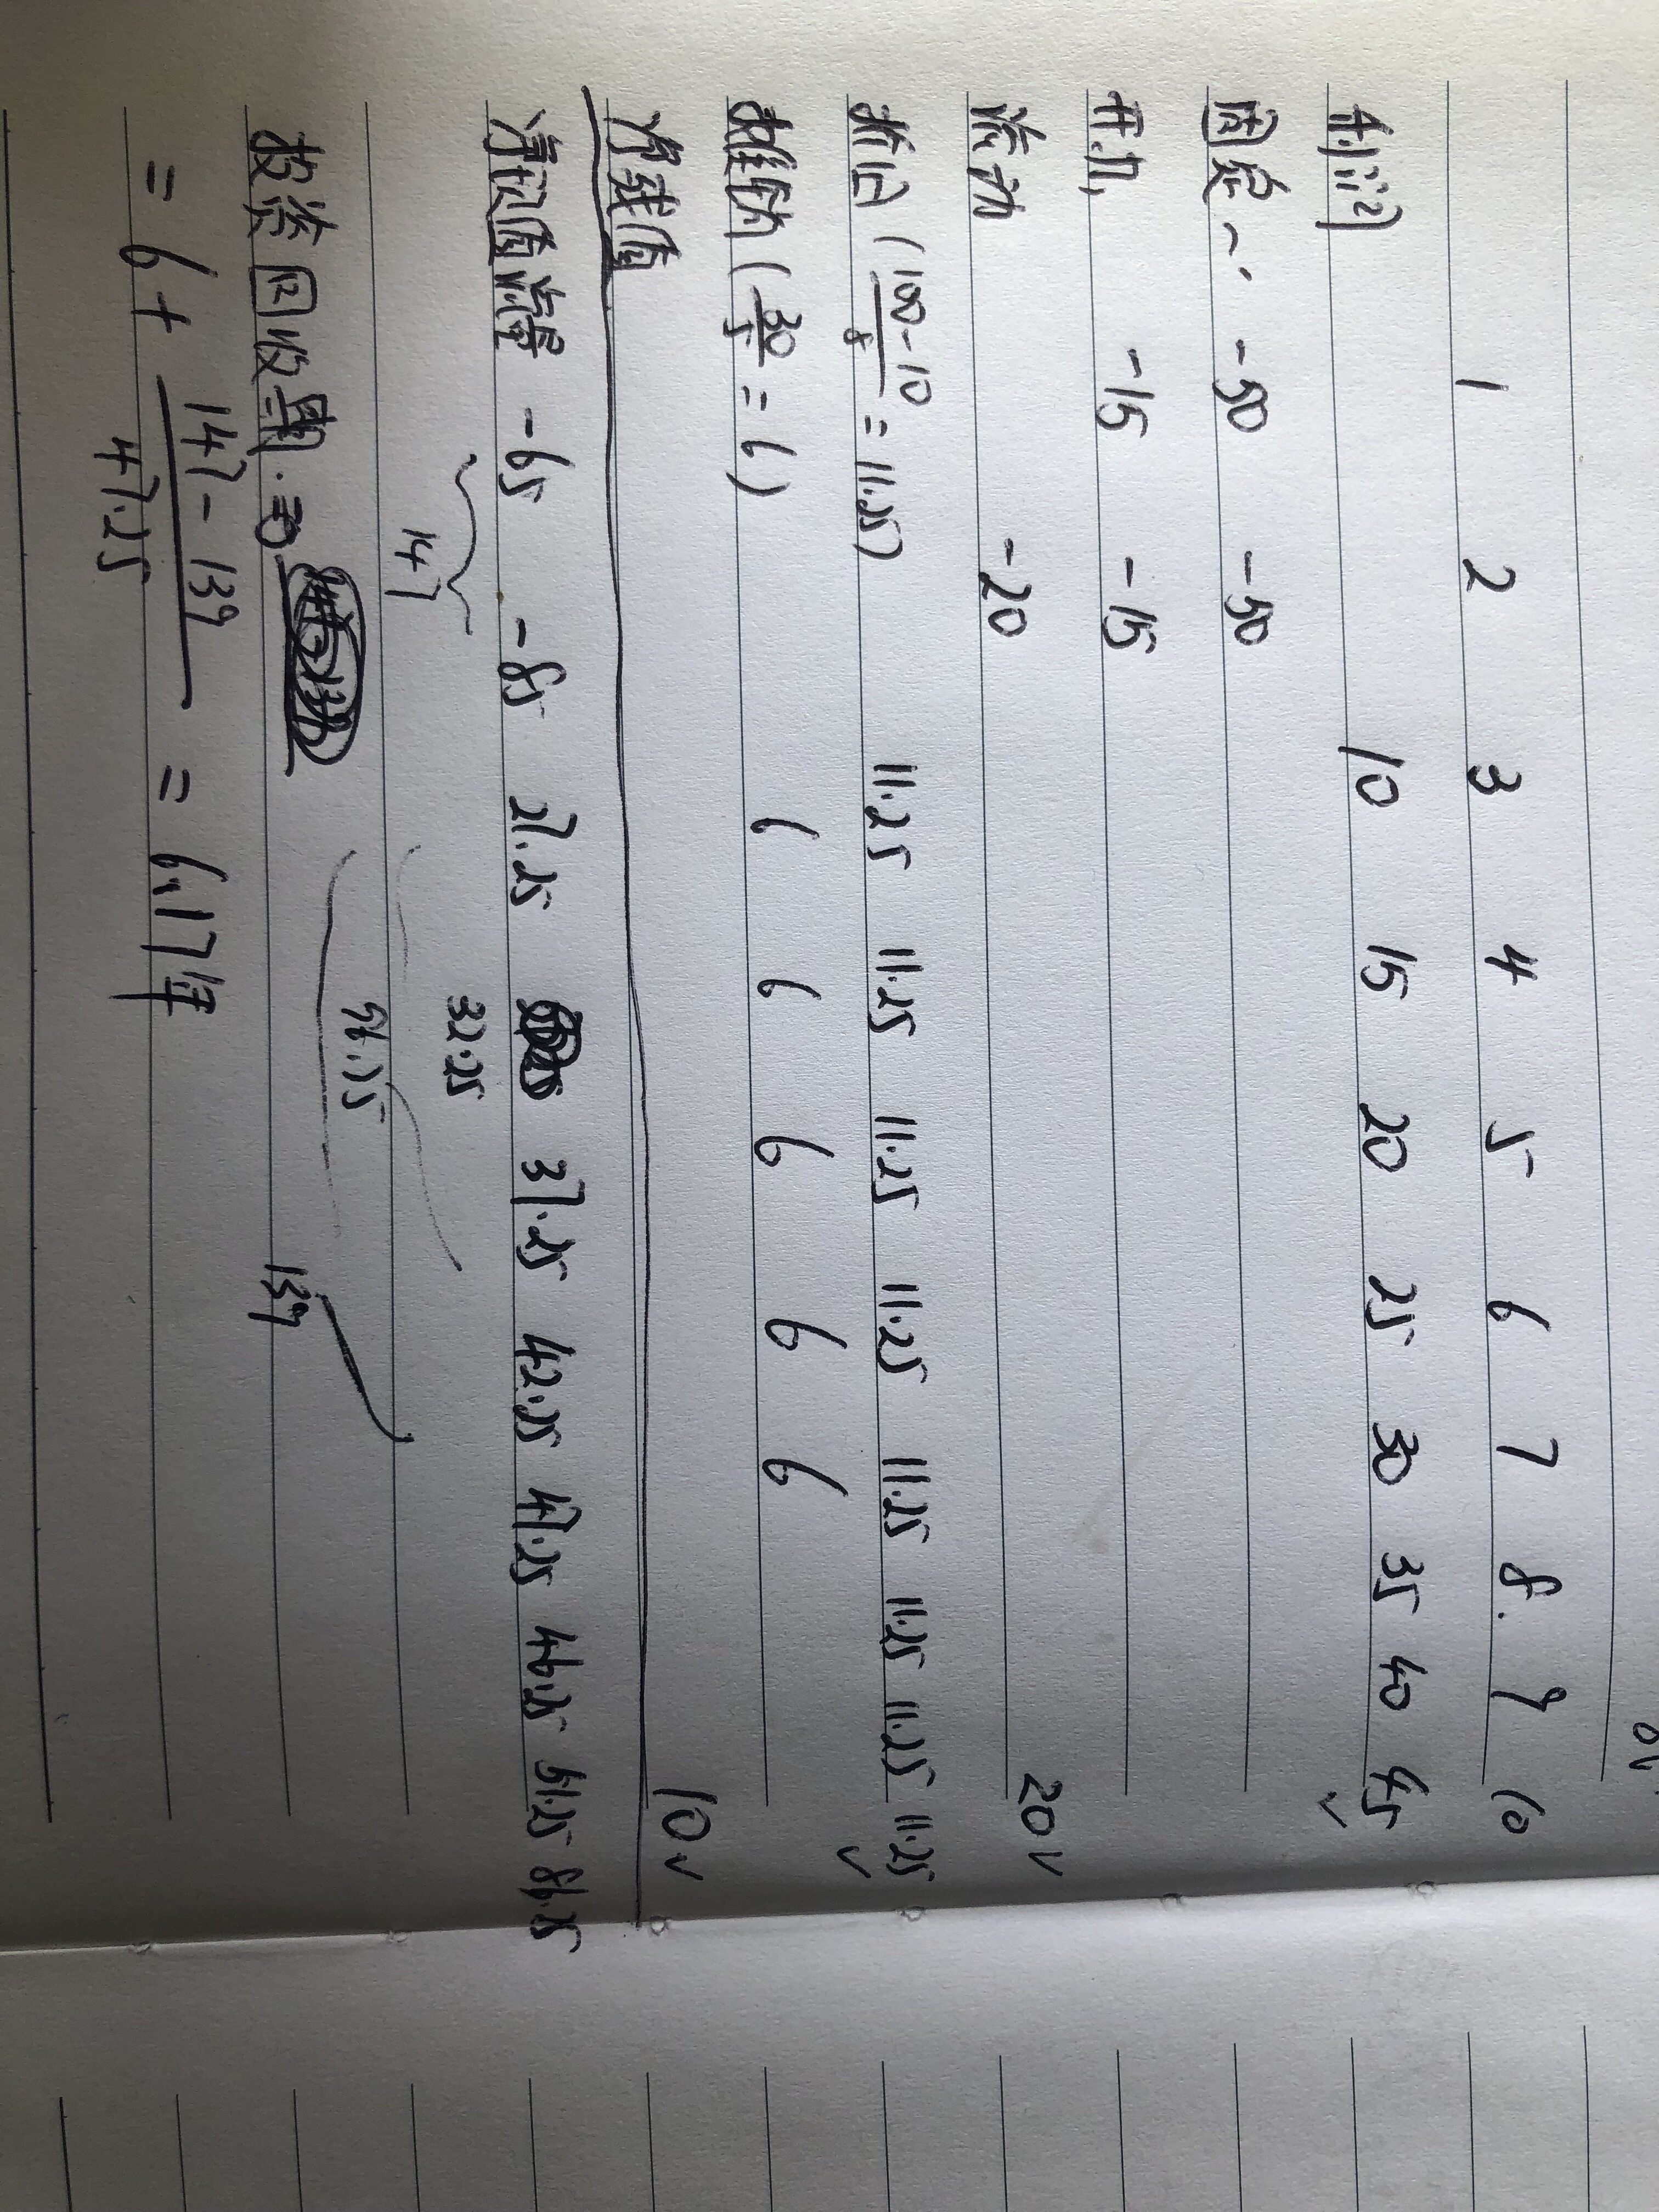 1 2 3 4 5 6 7 8. 9 10
利润 10 15 20 25 30 35 40 45 ✓
固定 -50 -50
开办 -15 -15
流动 -20 20 ✓
折旧 (100-10/8 = 11.25) 11.25 11.25 11.25 11.25 11.25 11.25 11.25 11.25 ✓
摊销 (30/5 = 6) 6 6 6 6 6
净残值 10 ✓
净现值流量 -65 -85 27.25 37.25 42.25 47.25 46.25 51.25 86.25
32.25
147
96.75
投资回收期.
139
= 6 + 147-139/47.25 = 6.17年